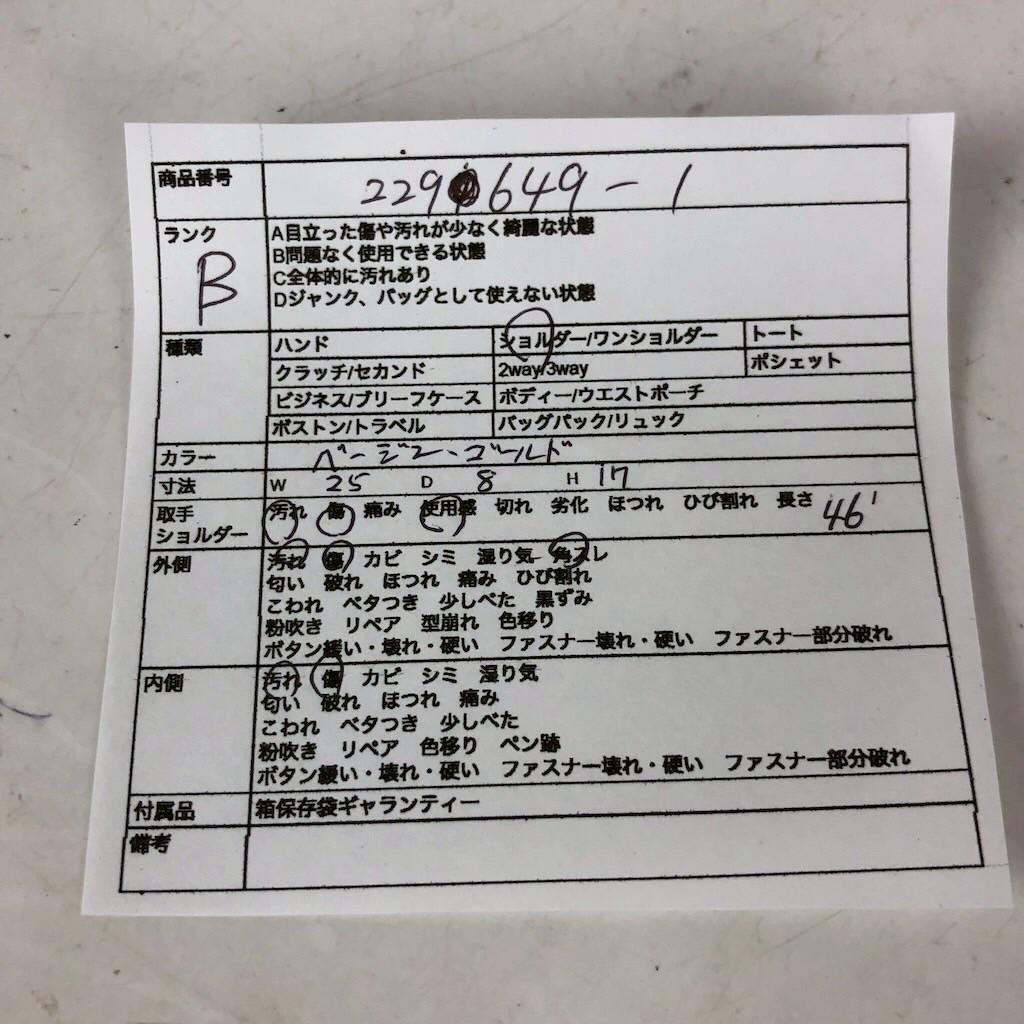 商品番号 229 649-1
ランク A目立った傷や汚れが少なく綺麗な状態
B B問題なく使用できる状態
C全体的に汚れあり
Dジャンク、バッグとして使えない状態
種類 ハンド ショルダー/ワンショルダー トート
クラッチ/セカンド 2way/3way ポシェット
ビジネス/ブリーフケース ボディー/ウエストポーチ
ボストン/トラベル バッグパック/リュック
カラー ベージュ・ゴールド
寸法 W 25 D 8 H 17
取手 汚れ 傷 痛み 使用感 切れ 劣化 ほつれ ひび割れ 長さ 46
ショルダー
外側 汚れ 傷 カビ シミ 湿り気 角スレ
匂い 破れ ほつれ 痛み ひび割れ
こわれ ベタつき 少しべた 黒ずみ
粉吹き リペア 型崩れ 色移り
ボタン緩い・壊れ・硬い ファスナー壊れ・硬い ファスナー部分破れ
内側 汚れ 傷 カビ シミ 湿り気
匂い 破れ ほつれ 痛み
こわれ ベタつき 少しべた
粉吹き リペア 色移り ペン跡
ボタン緩い・壊れ・硬い ファスナー壊れ・硬い ファスナー部分破れ
付属品 箱保存袋ギャランティー
備考